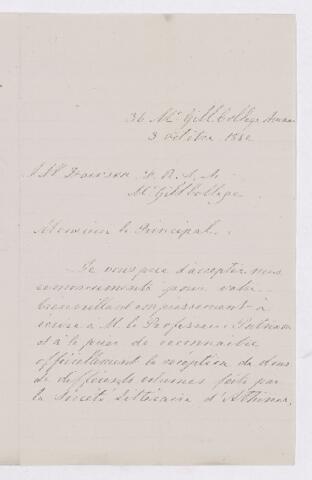 36 McGill College Avenue
3 octobre 1882
J. W. Dawson F. R. S.
McGill College
Monsieur le Principal.
Je vous prie d'accepter mes
remerciements pour votre
bienveillant empressement à
écrire à M. le Professeur Putnam
et à le prier de reconnaître
officiellement la réception du don
de différents volumes faite par
la Société littéraire d'Athènes,